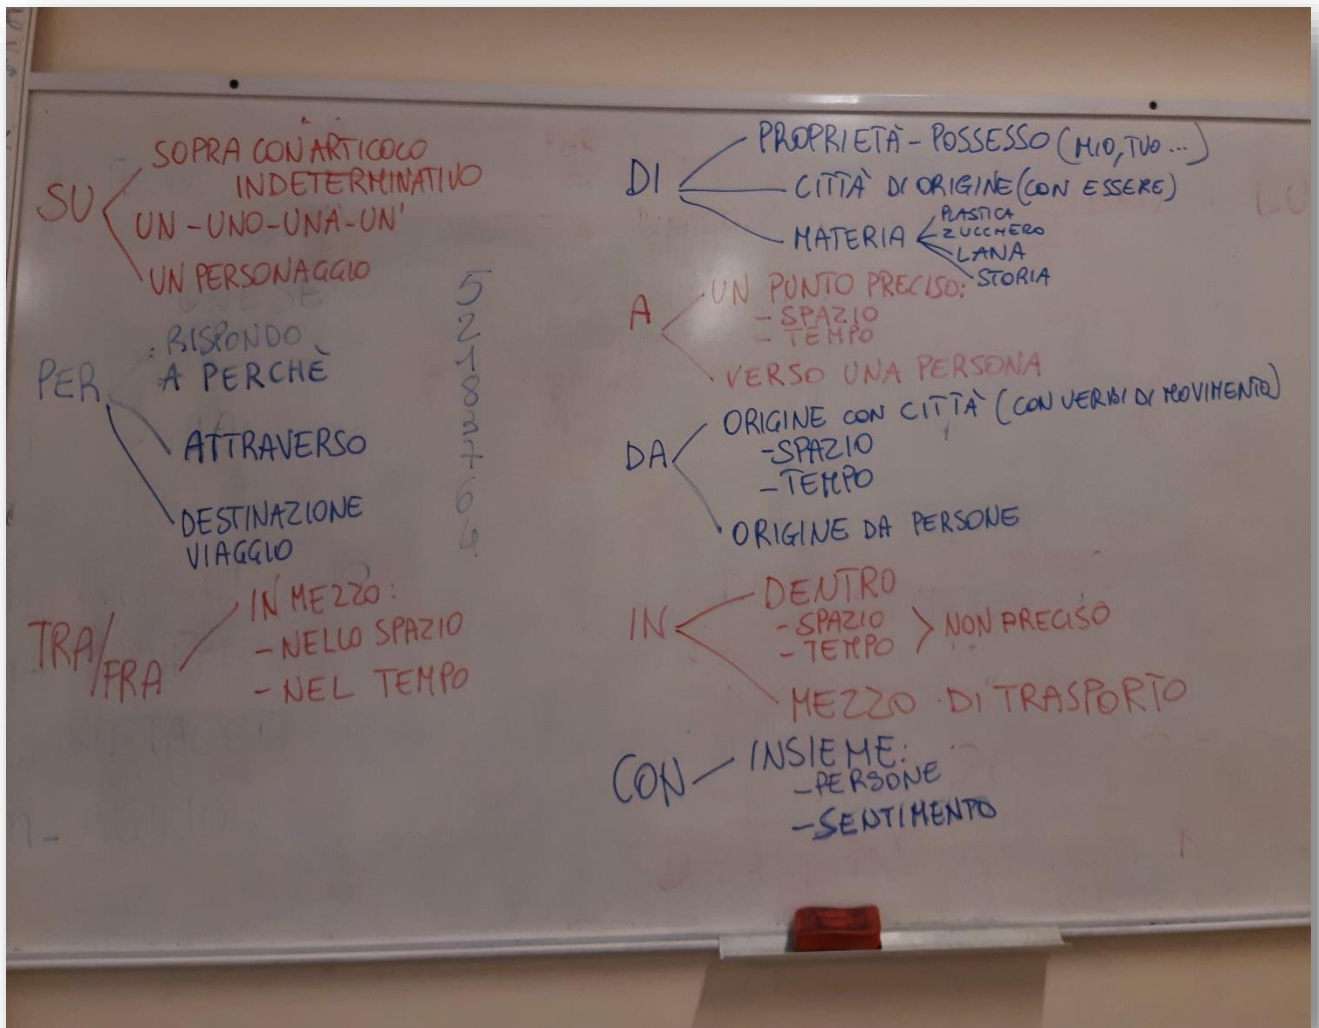 SU
SOPRA CON ARTICOLO
INDETERMINATIVO
UN - UNO - UNA - UN'
UN PERSONAGGIO
PER
RISPONDO
A PERCHÈ
ATTRAVERSO
DESTINAZIONE
VIAGGIO
TRA/FRA
IN MEZZO:
- NELLO SPAZIO
- NEL TEMPO
5
2
1
8
3
7
6
4
DI
PROPRIETÀ - POSSESSO (MIO, TUO...)
CITTÀ DI ORIGINE (CON ESSERE)
MATERIA
PLASTICA
ZUCCHERO
LANA
STORIA
A
UN PUNTO PRECISO:
- SPAZIO
- TEMPO
VERSO UNA PERSONA
DA
ORIGINE CON CITTÀ (CON VERBI DI MOVIMENTO)
- SPAZIO
- TEMPO
ORIGINE DA PERSONE
IN
DENTRO
- SPAZIO
- TEMPO
> NON PRECISO
MEZZO DI TRASPORTO
CON
INSIEME:
- PERSONE
- SENTIMENTO